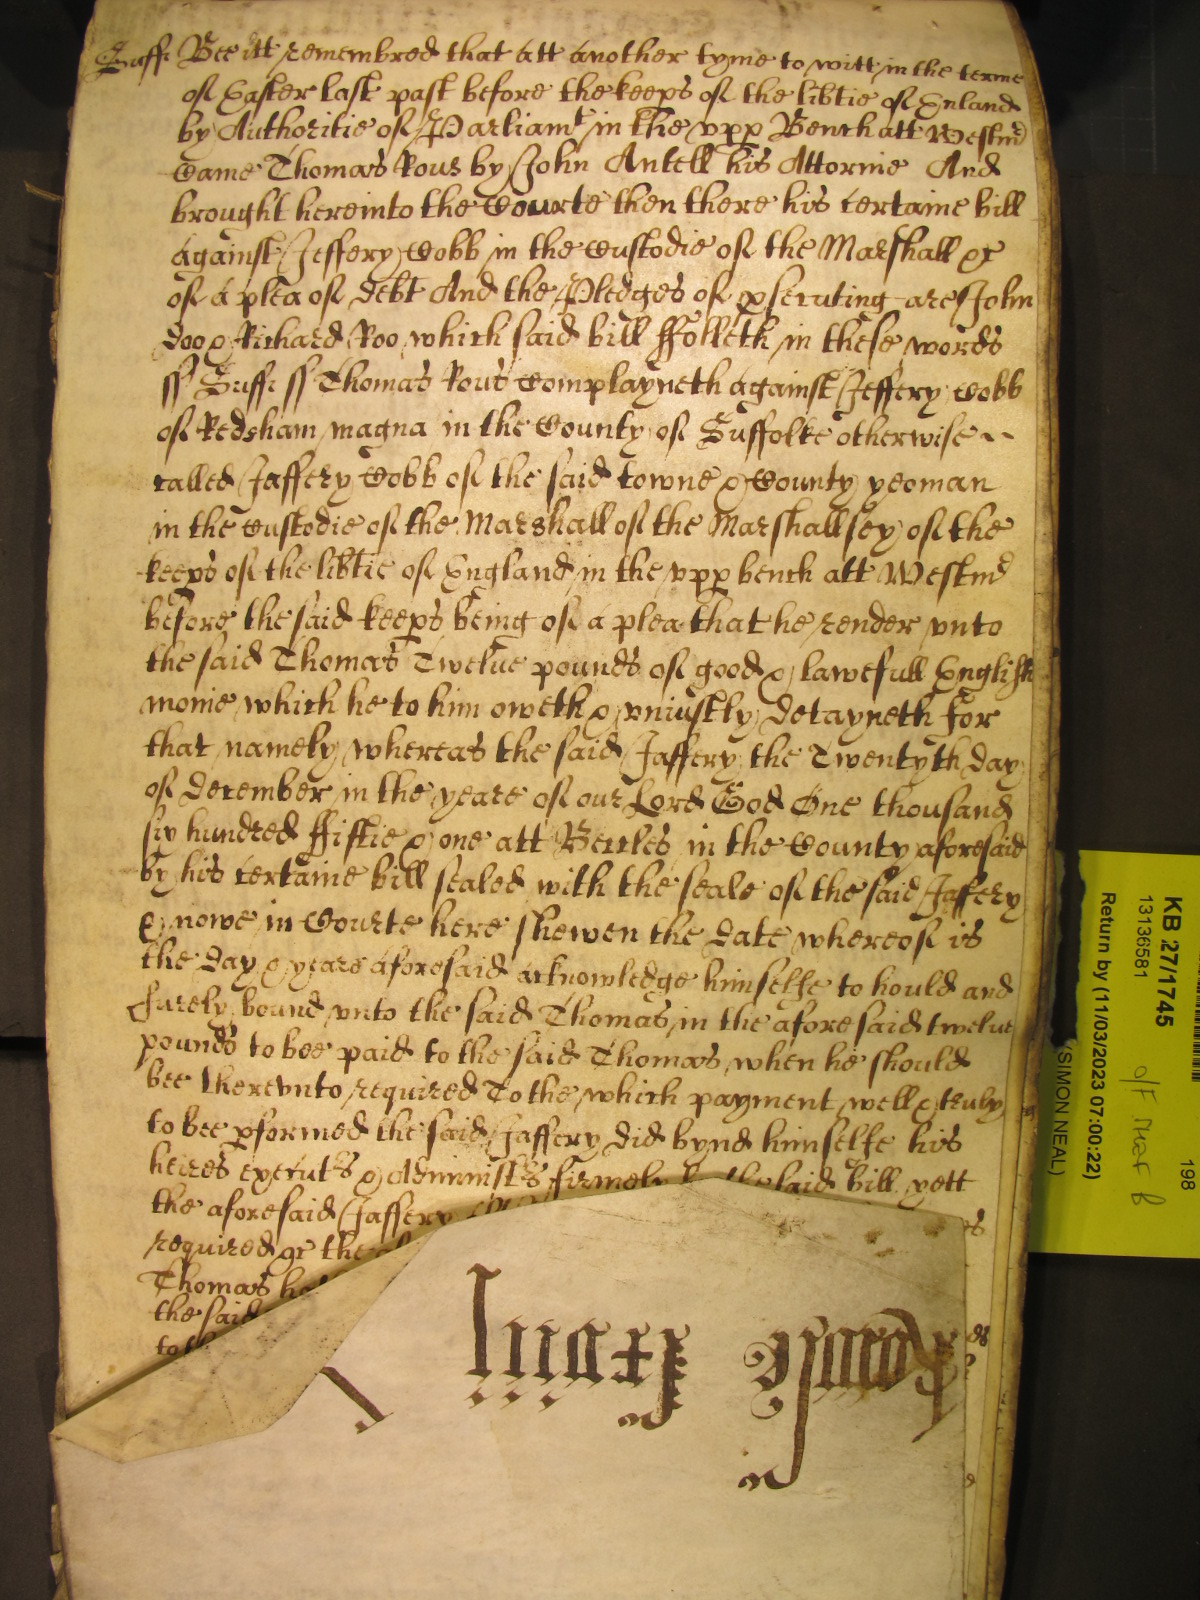 Suff: Bee itt remembred that att another tyme to witt in the terme
of Easter last past before the keeps of the libtie of Enland
by Authoritie of Parliamt in the vpp Bench att Westmr
Came Thomas Rous by John Antell his Attornie And
brought here into the Courte then there his certaine bill
against Jeffery Cobb in the Custodie of the Marshall &c
of a plea of debt And the Pledges of psecuting are John
Doo & Richard Roo which said bill ffolleth in these words
ss Suff: ss Thomas Rous Complayneth against Jeffery Cobb
of Redsham magna in the County of Suffolke otherwise
called Jaffery Cobb of the said towne & County yeoman
in the Custodie of the Marshall of the Marshallsey of the
keeps of the libtie of England in the vpp bench att Westmr
before the said keeps being of a plea that he render vnto
the said Thomas Twelve pounds of good & lawefull English
monie which he to him oweth & vniustly detayneth For
that namely whereas the said Jaffery the Twentyth day
of December in the yeare of our Lord God One thousand
six hundred ffiftie & one att Beccles in the County aforesaid
by his certaine bill sealed with the seale of the said Jaffery
& nowe in Courte here shewen the date whereof is
the day & yeare aforesaid acknowledge himselfe to hould and
surely bound vnto the said Thomas in the aforesaid twelve
pounds to bee paid to the said Thomas when he should
bee therevnto required To the which payment well & truly
to bee pformed the said Jaffery did bynd himselfe his
heires executs & Administs firmely the said bill yett
the aforesaid Jaffery
required or the
Thomas
the said
KB 27/1745
13136581
Return by (11/03/2023 07:00:22)
(SIMON NEAL)
198